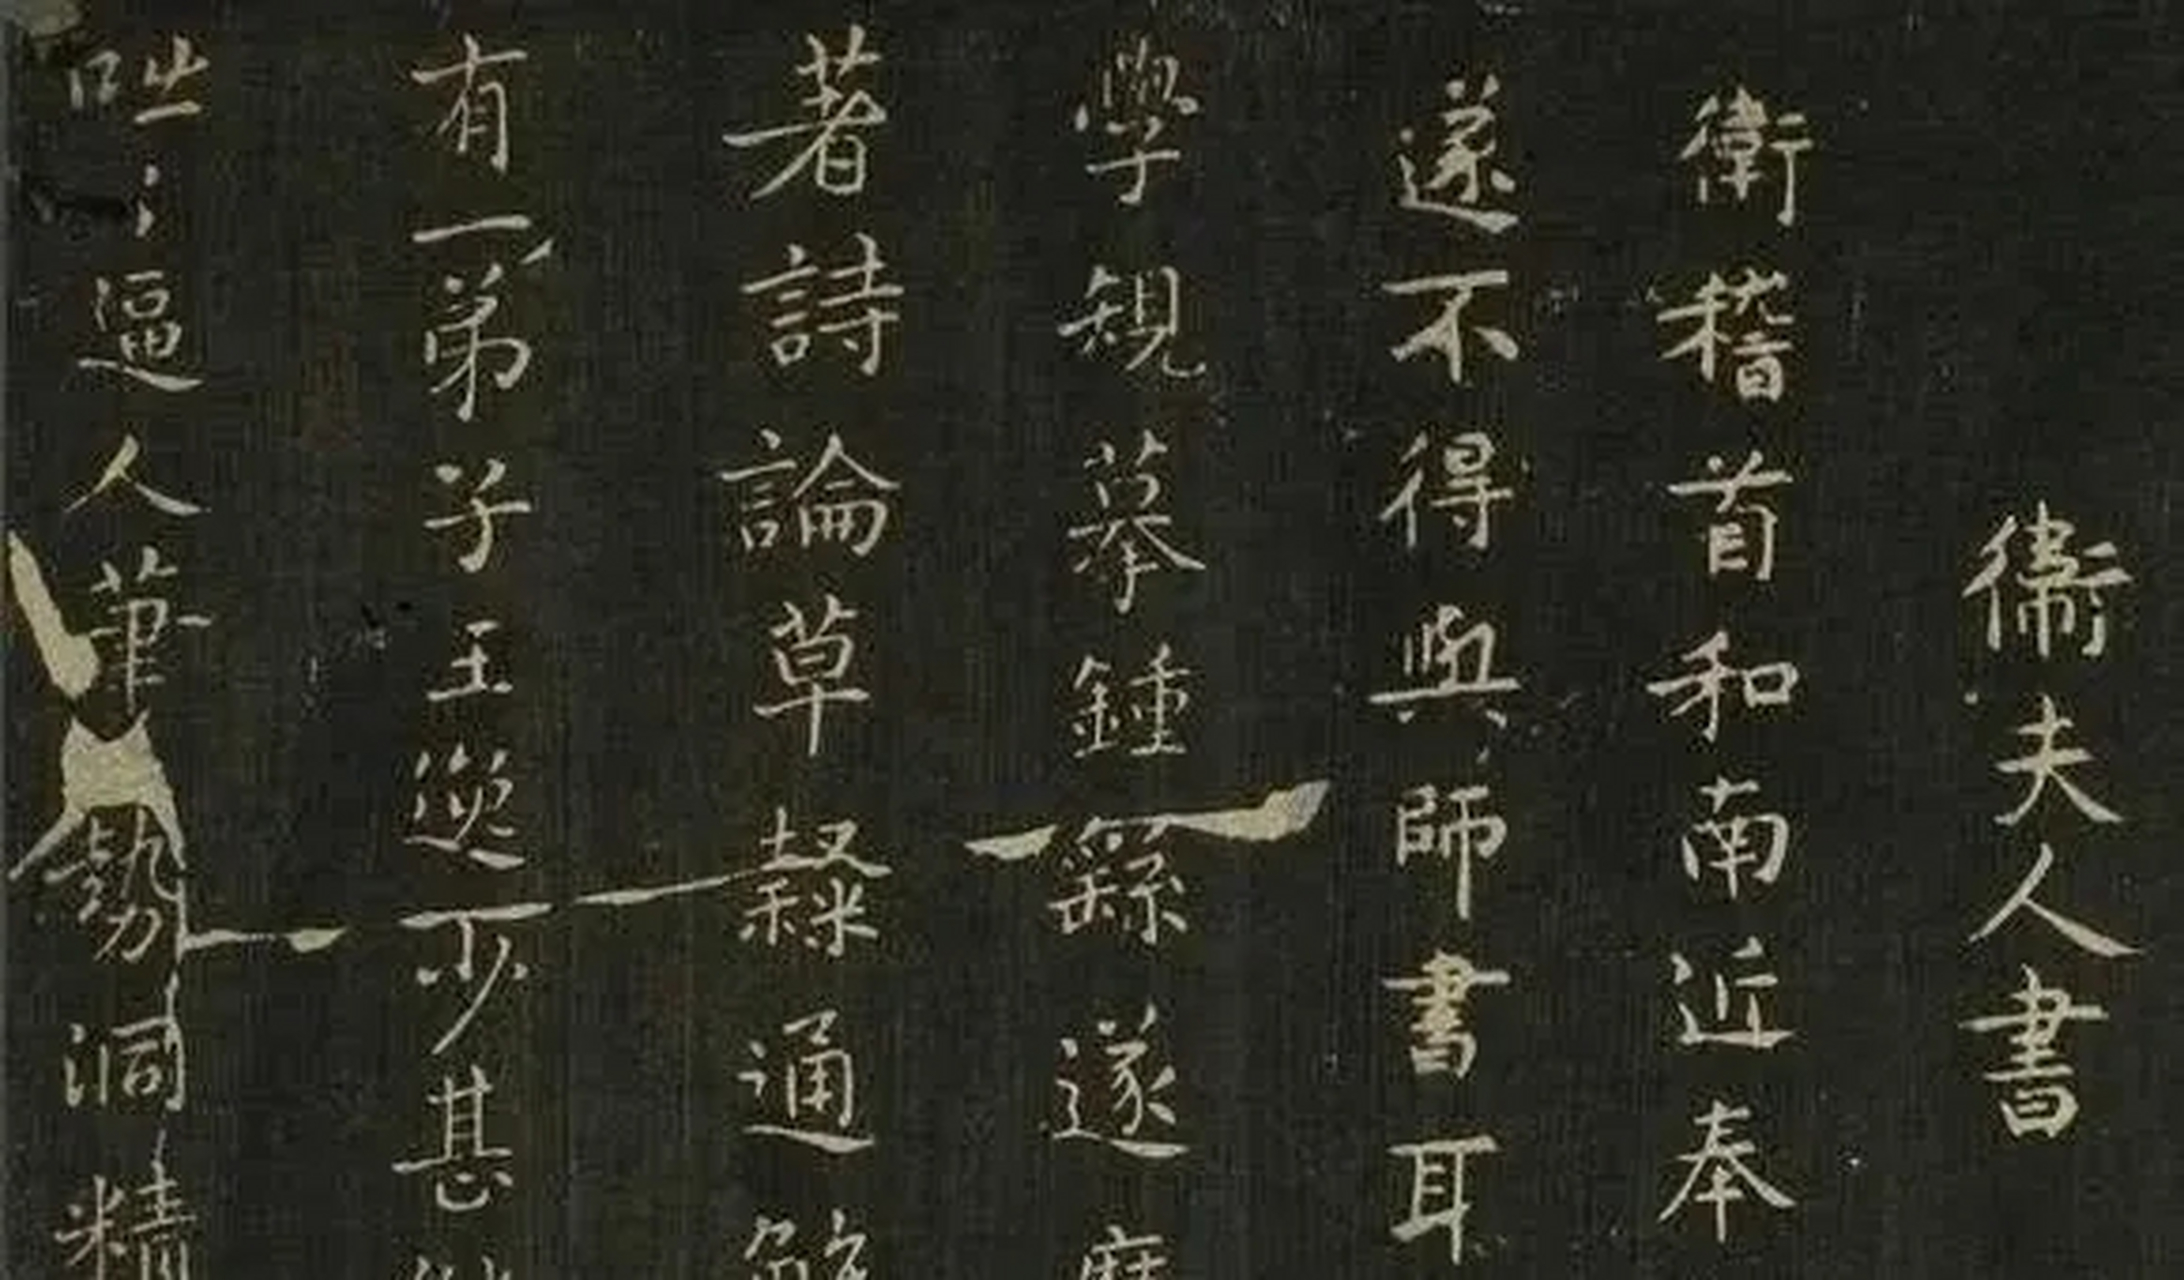 衛夫人書
衛稽首和南近奉
遂不得與師書耳
學規摹鍾繇遂歷
著詩論草隸通解
有一弟子王逸少甚
咄咄逼人筆勢洞精